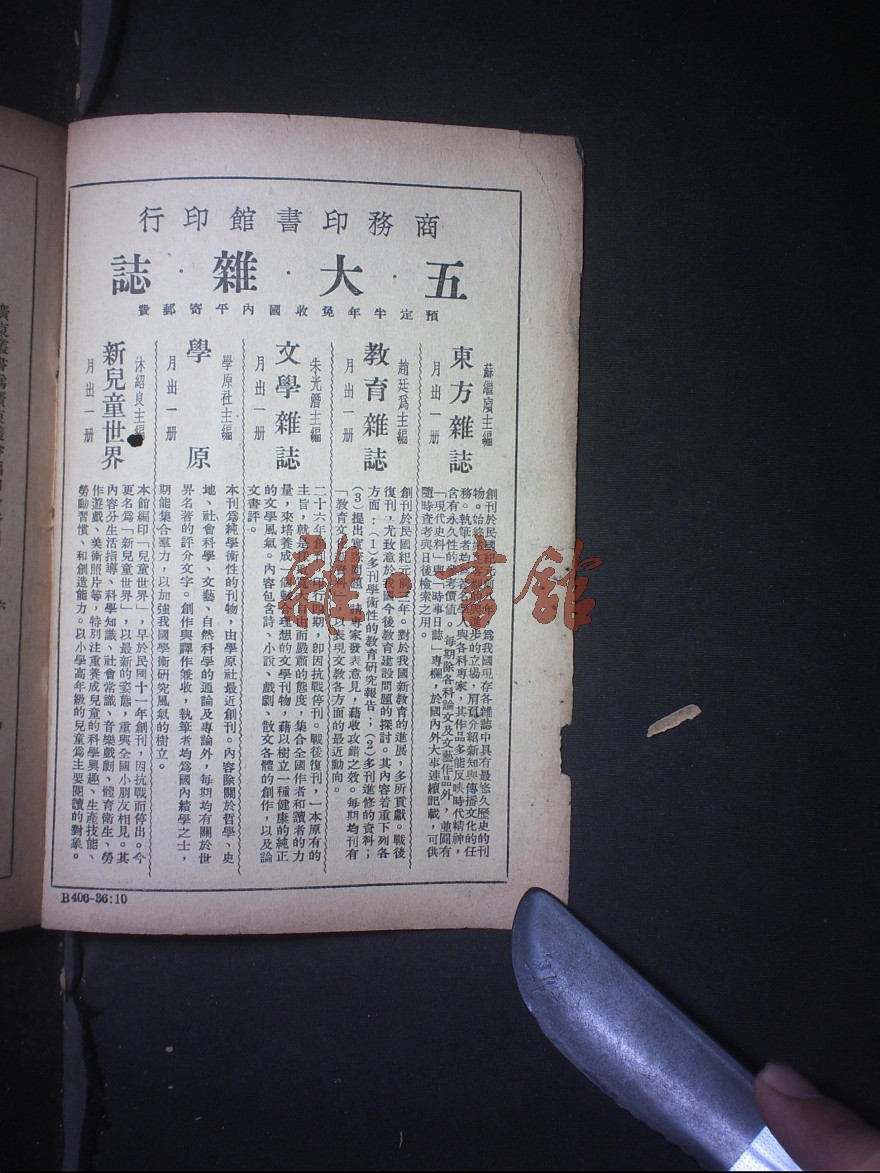 商務印書館印行
五·大·雜·誌
預定半年免收國內平寄郵費
東方雜誌
蘇繼廎主編
月出一册
創刊於民國紀元前八年，為我國現存各雜誌中具有最悠久歷史的刊
物。始終站在客觀的與進步的立場，肩負介紹新知與傳播文化的任
務。執筆者均著名學人與各科專家，其作品多能反映時代精神，
含有永久性的參考價值。每期除各科論文及文藝作品外，並闢有
「現代史料」與「時事日誌」專欄，於國內外大事連續記載，可供
隨時查考與日後檢索之用。
教育雜誌
趙廷爲主編
月出一册
創刊於民國紀元前二年。對於我國新教育的進展，多所貢獻。戰後
復刊，尤致意於我國今後教育建設問題的探討。其內容着重下列各
方面：（1）多刊學術性的教育研究報告；（2）多刊進修的資料；
（3）提出實際問題，請專家發表意見，藉收攻錯之效。每期均刊有
「教育文化史資料」，以表現文教各方面的最近動向。
文學雜誌
朱光潛主編
月出一册
二十六年創刊，印行四期，卽因抗戰停刊。戰後復刊，一本原有的
主旨，就是採取寬大自由而嚴肅的態度，集合全國作者和讀者的力
量，來培養成一個較合理想的文學刊物，藉以樹立一種健康的純正
的文學風氣。內容包含詩、小說、戲劇、散文各體的創作，以及論
文書評。
學原
學原社主編
月出一册
本刊爲純學術性的刊物，由學原社最近創刊。內容除關於哲學、史
地、社會科學、文藝、自然科學的通論及專論外，每期均有關於世
界名著的評介文字。創作與譯作兼收，執筆者均爲國內績學之士，
期能集合羣力，以加強我國學術研究風氣的樹立。
新兒童世界
沐紹良主編
月出一册
本館編印「兒童世界」，早於民國十一年創刊，因抗戰而停出。今
更名爲「新兒童世界」，以最新的姿態，重與全國小朋友相見。其
內容分生活指導、科學知識、社會常識、音樂戲劇、體育衛生、勞
作遊戲、美術照片等，特別注重養成兒童的科學興趣、生產技能、
勞動習慣、和創造能力。以小學高年級的兒童爲主要閱讀的對象。
B406-36:10
雜·書館